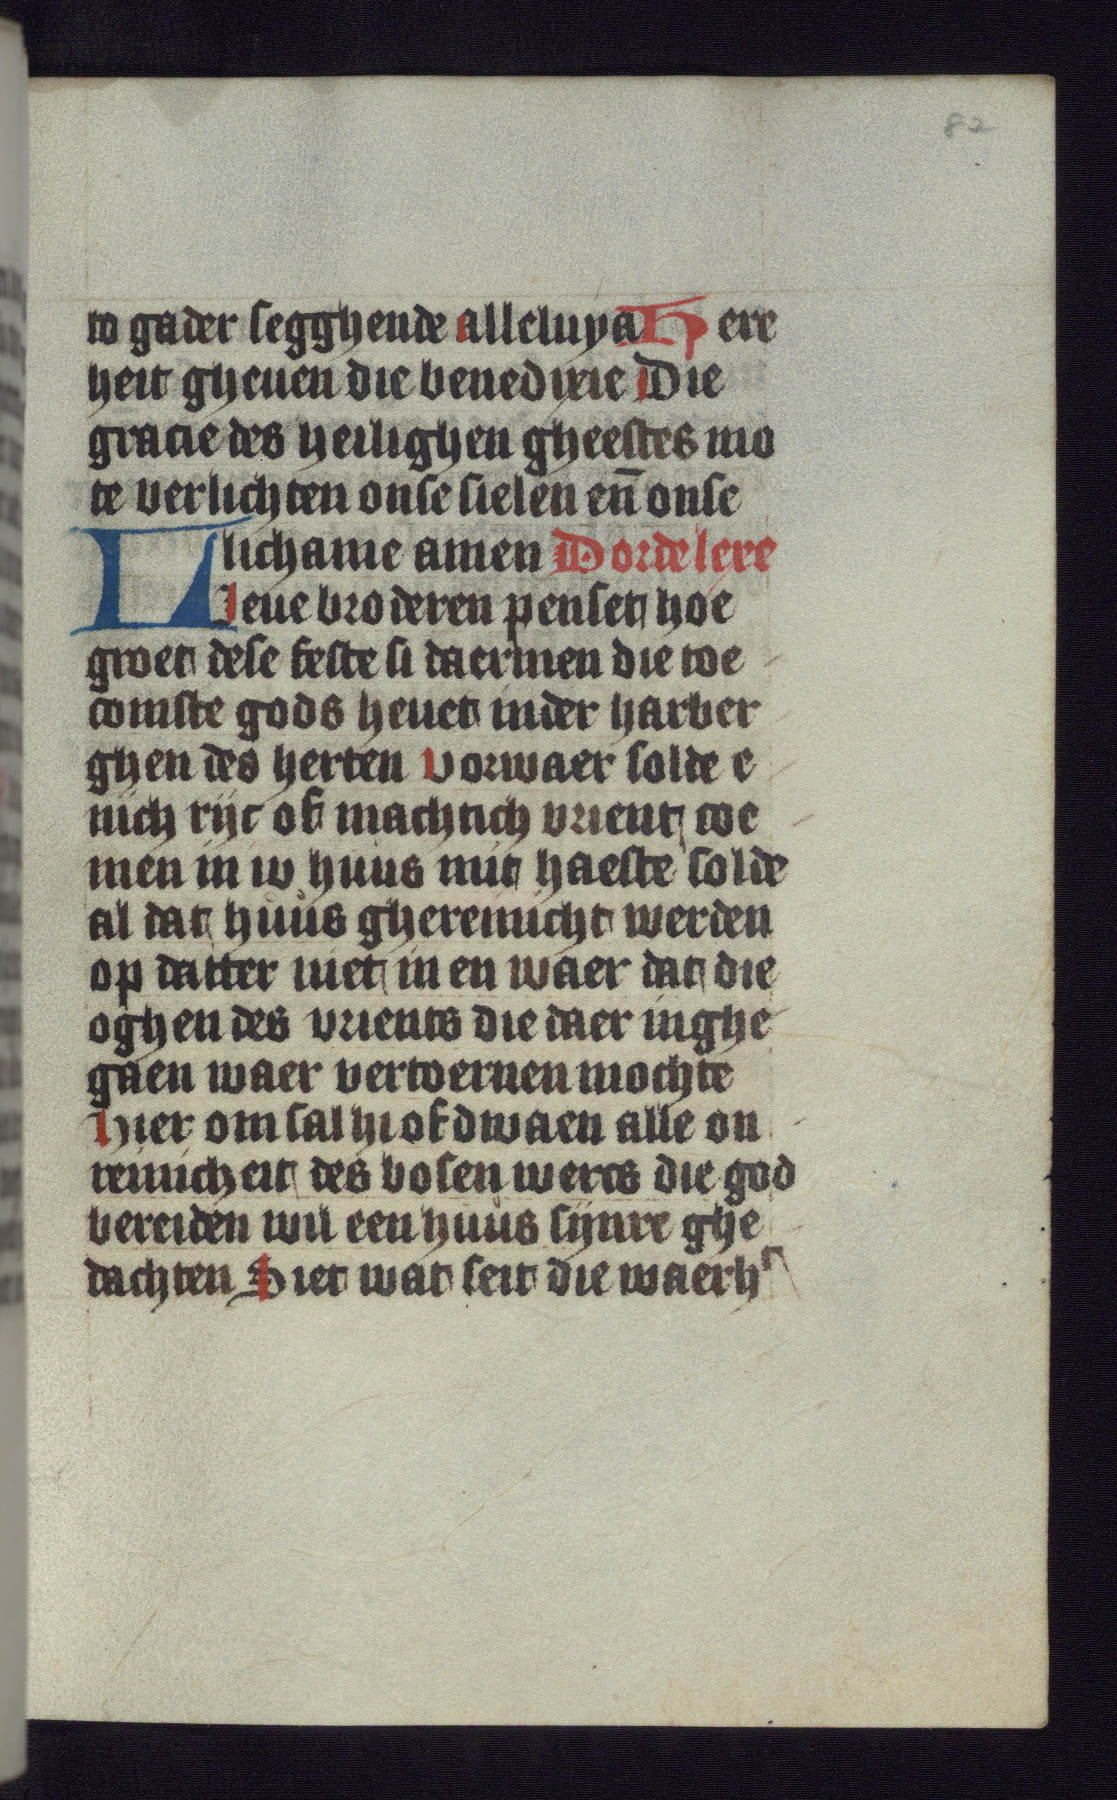 82
to gader segghende alleluya Here
heit gheuen die benedixie Die
gracie des heilighen gheestes mo
te verlichten onse sielen en̄ onse
lichame amen Dordelexe
Lieue broderen penset hoe
groet dese feste si daermen die toe
comste gods heuet inder harber
ghen des herten vorwaer solde e
nich rijc of machtich vrient coe
men in iw huus mit haeste solde
al dat huus ghereinicht werden
op datter niet in en waer dat die
oghen des vrients die daer inghe
gaen waer vertoernen mochte
Hier om sal hi ofdwaen alle on
reinicheit des bosen wercs die god
bereiden wil een huus sijnre ghe
dachten Siet wat seit die waerh